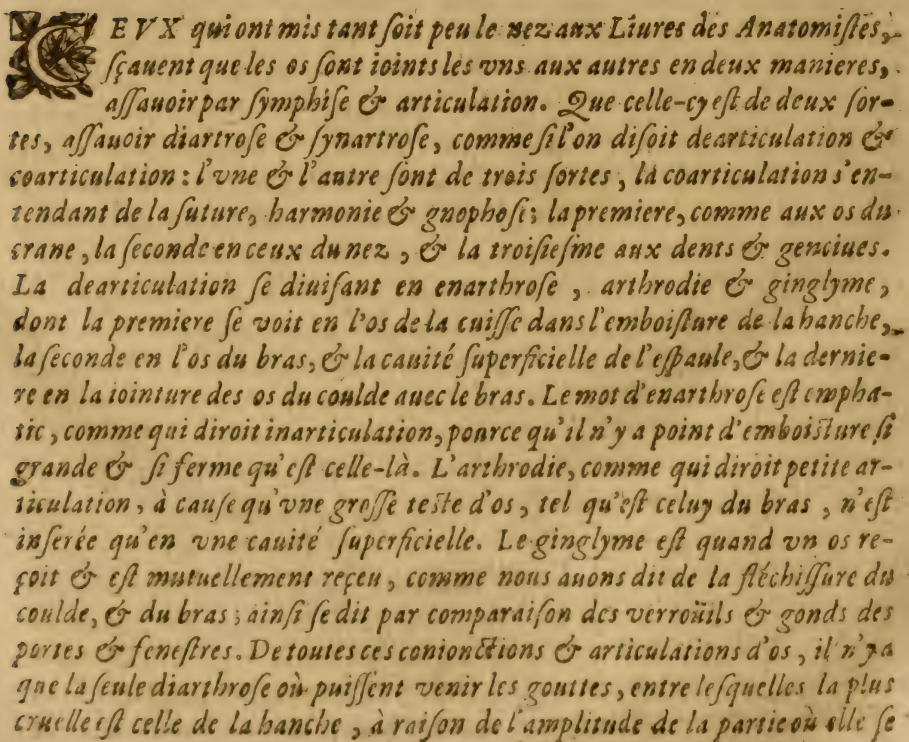 CEVX qui ont mis tant ſoit peu le nez aux Liures des Anatomiſtes,
ſçauent que les os ſont ioints les vns aux autres en deux manieres,
aſſauoir par ſymphiſe & articulation. Que celle-cy eſt de deux ſor-
tes, aſſauoir diartroſe & ſynartroſe, comme ſi l'on diſoit dearticulation &
coarticulation : l'vne & l'autre ſont de trois ſortes, la coarticulation s'en-
tendant de la ſuture, harmonie & gnophoſi; la premiere, comme aux os du
crane, la ſeconde en ceux du nez, & la troiſieſme aux dents & genciues.
La dearticulation ſe diuiſant en enarthroſe, arthrodie & ginglyme,
dont la premiere ſe voit en l'os de la cuiſſe dans l'emboiſture de la hanche,
la ſeconde en l'os du bras, & la cauité ſuperficielle de l'eſpaule, & la dernie-
re en la iointure des os du coulde auec le bras. Le mot d'enarthroſe eſt empha-
tic, comme qui diroit inarticulation, pource qu'il n'y a point d'emboiſture ſi
grande & ſi ferme qu'eſt celle-là. L'arthrodie, comme qui diroit petite ar-
ticulation, à cauſe qu'vne groſſe teſte d'os, tel qu'eſt celuy du bras, n'eſt
inſerée qu'en vne cauité ſuperficielle. Le ginglyme eſt quand vn os re-
çoit & eſt mutuellement reçeu, comme nous auons dit de la fléchiſſure du
coulde, & du bras; ainſi ſe dit par comparaiſon des verroüils & gonds des
portes & feneſtres. De toutes ces conionctions & articulations d'os, il n'y a
que la ſeule diarthroſe où puiſſent venir les gouttes, entre leſquelles la plus
cruelle eſt celle de la hanche, à raiſon de l'amplitude de la partie où elle ſe